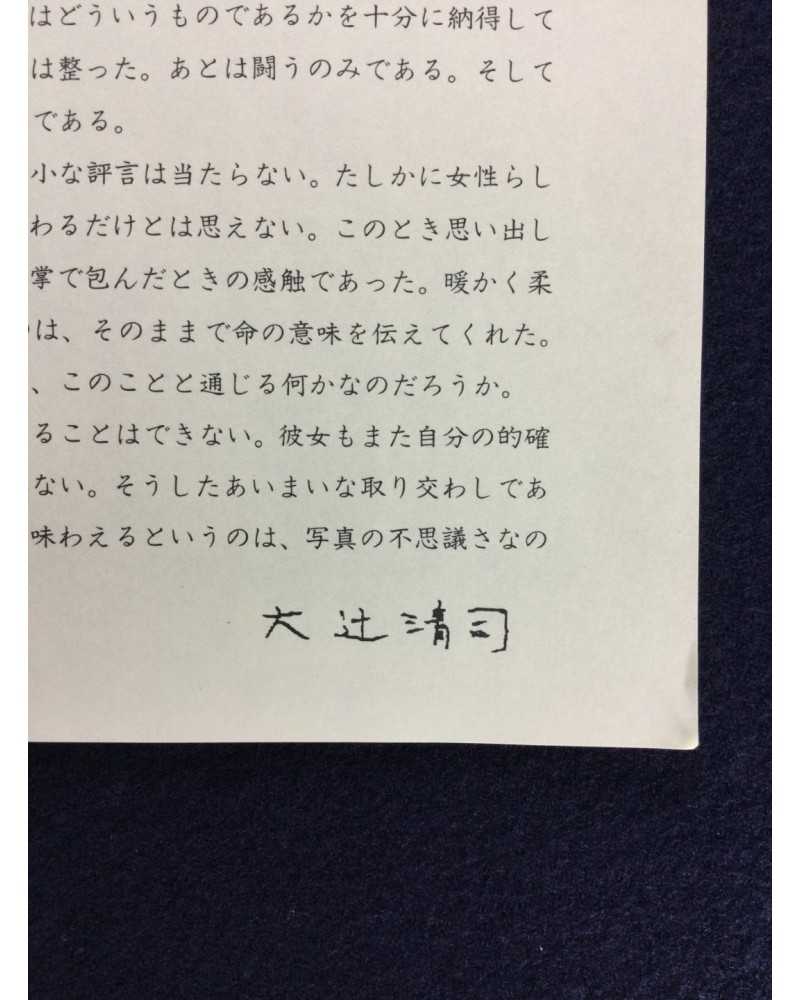 はどういうものであるかを十分に納得して
は整った。あとは闘うのみである。そして
である。
小な評言は当たらない。たしかに女性らし
わるだけとは思えない。このとき思い出し
掌で包んだときの感触であった。暖かく柔
は、そのままで命の意味を伝えてくれた。
、このことと通じる何かなのだろうか。
ることはできない。彼女もまた自分の的確
ない。そうしたあいまいな取り交わしであ
味わえるというのは、写真の不思議さなの
大辻清司